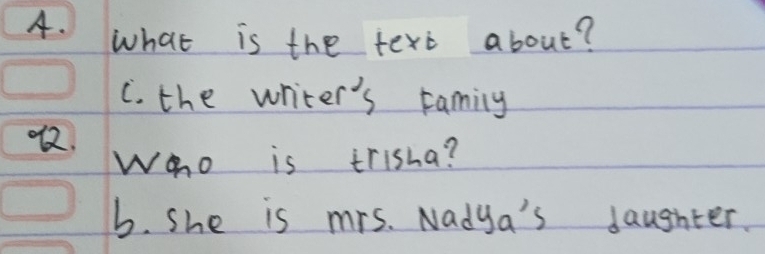 1. What is the text about?
c. the writer's family
2. Who is trisha?
b. she is mrs. Nadya's daughter.